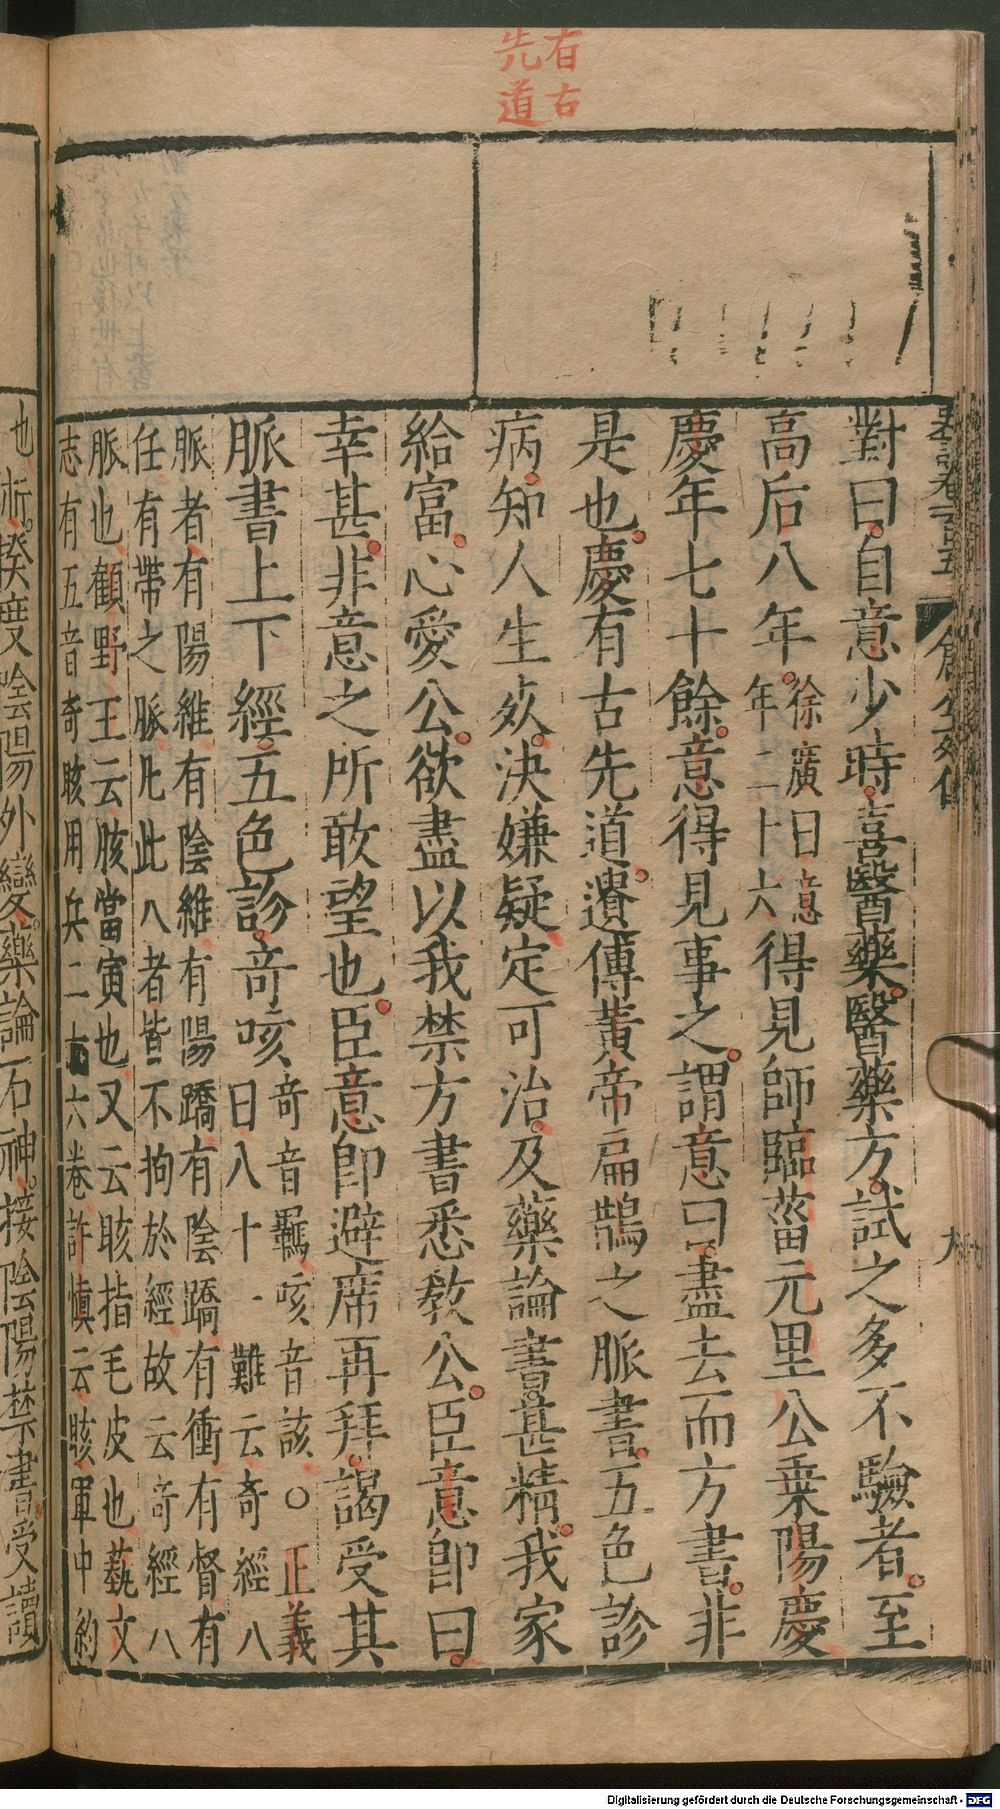 右古
先道
對曰自意少時喜醫藥醫藥方試之多不驗者至
高后八年徐廣曰意年二十六得見師臨菑元里公乗陽慶
慶年七十餘意得見事之謂意曰盡去而方書非
是也慶有古先道遺傳黃帝扁鵲之脈書五色診
病知人生死決嫌疑定可治及藥論書甚精我家
給富心愛公欲盡以我禁方書悉教公臣意即曰
幸甚非意之所敢望也臣意即避席再拜謁受其
脈書上下經五色診奇咳奇音羈咳音該○正義曰八十一難云奇經八
脈者有陽維有陰維有陽蹻有陰蹻有衝有督有
任有帶之脈凡此八者皆不拘於經故云奇經八
脈也顧野王云胲當寅也又云胲指毛皮也藝文
志有五音奇胲用兵二十六卷許慎云胲軍中約
也術揆度陰陽外變藥論石神接陰陽禁書受讀
Digitalisierung gefördert durch die Deutsche Forschungsgemeinschaft - DFG